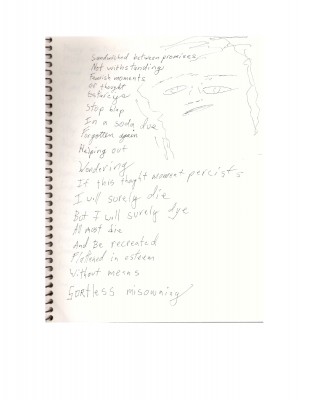 Sandwiched between promises
Not withstandings
Feurish moments
of thought
Stop Wap
In a soda due
Forgotten again
Helping out
Wondering
If this thaght moment percists
I will surely die
But I will surely dye
As must die
And Be recreated
in esteem
Without means
misowning